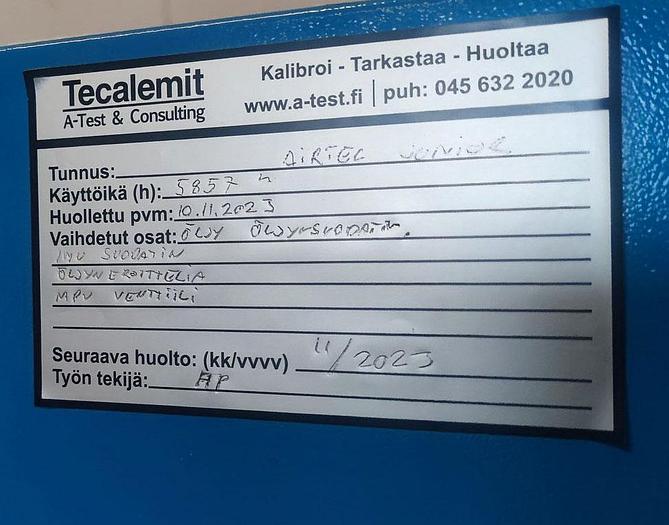 Tecalemit
A-Test & Consulting
Kalibroi - Tarkastaa - Huoltaa
www.a-test.fi | puh: 045 632 2020
Tunnus: AIRTEC JUNIOR
Käyttöikä (h): 5857 h
Huollettu pvm: 10.11.2023
Vaihdetut osat: ÖLJY ÖLJYNSUODATIN.
IMU SUODATIN
ÖLJYNEROITTELIA
MPV VENTTIILI
Seuraava huolto: (kk/vvvv) 11/2023
Työn tekijä: AP